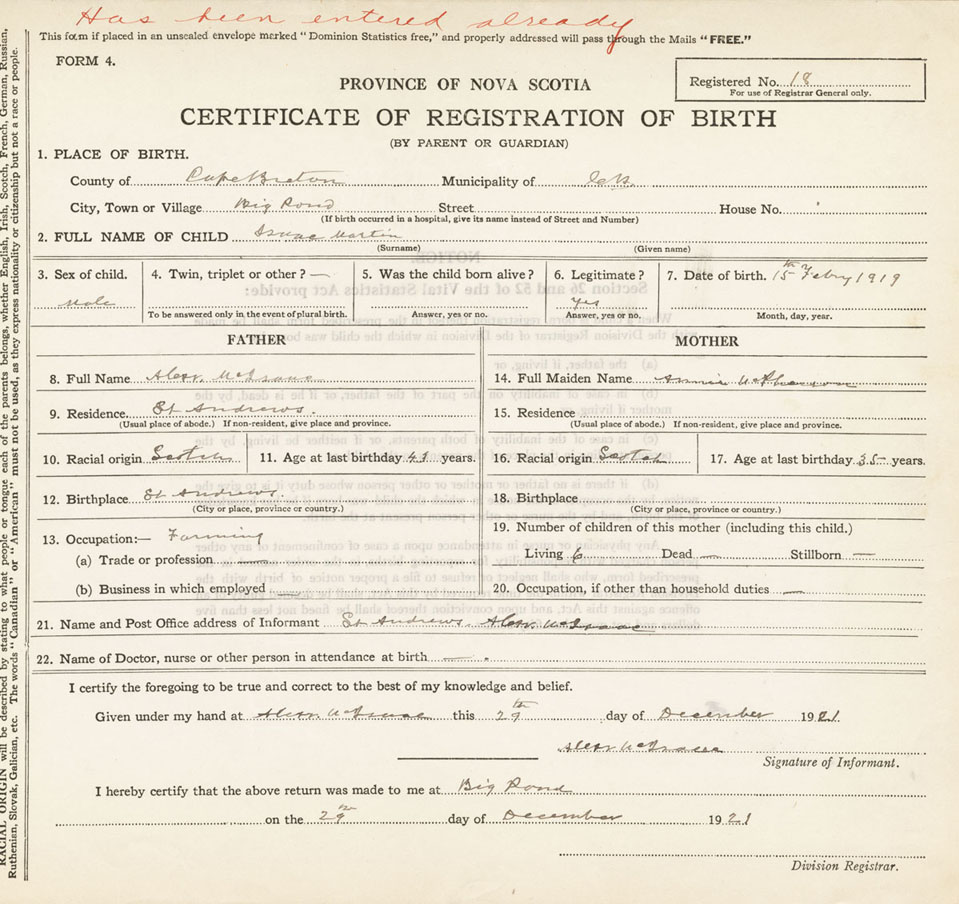 Has been entered already
This form if placed in an unsealed envelope marked "Dominion Statistics free," and properly addressed will pass through the Mails "FREE."
FORM 4.
Registered No. 18
For use of Registrar General only.
PROVINCE OF NOVA SCOTIA
CERTIFICATE OF REGISTRATION OF BIRTH
(BY PARENT OR GUARDIAN)
1. PLACE OF BIRTH.
County of Cape Breton Municipality of C.B.
City, Town or Village Big Pond Street House No.
(If birth occurred in a hospital, give its name instead of Street and Number)
2. FULL NAME OF CHILD Isaac Martin
(Surname) (Given name)
3. Sex of child. 4. Twin, triplet or other? — 5. Was the child born alive? 6. Legitimate? 7. Date of birth. 15th Febry 1919
Male Yes
To be answered only in the event of plural birth. Answer, yes or no. Answer, yes or no. Month, day, year.
FATHER MOTHER
8. Full Name Alexr. McIsaac 14. Full Maiden Name Annie
9. Residence St Andrews. 15. Residence
(Usual place of abode.) If non-resident, give place and province. (Usual place of abode.) If non-resident, give place and province.
10. Racial origin Scotch 11. Age at last birthday years. 16. Racial origin Scotch 17. Age at last birthday 35 years.
12. Birthplace St Andrews. 18. Birthplace
(City or place, province or country.) (City or place, province or country.)
19. Number of children of this mother (including this child.)
13. Occupation:— Farming
(a) Trade or profession — Living 6 Dead — Stillborn —
(b) Business in which employed — 20. Occupation, if other than household duties —
21. Name and Post Office address of Informant St Andrews. Alexr. McIsaac
22. Name of Doctor, nurse or other person in attendance at birth —
I certify the foregoing to be true and correct to the best of my knowledge and belief.
Given under my hand at Alexr. McIsaac this 29th day of December 1921
Alexr McIsaac
Signature of Informant.
I hereby certify that the above return was made to me at Big Pond
on the 29th day of December 1921
Division Registrar.
RACIAL ORIGIN will be described by stating to what people or tongue each of the parents belongs, whether English, Irish, Scotch, French, German, Russian,
Ruthenian, Slovak, Galician, etc. The words "Canadian" or "American" must not be used, as they express nationality or citizenship but not a race or people.